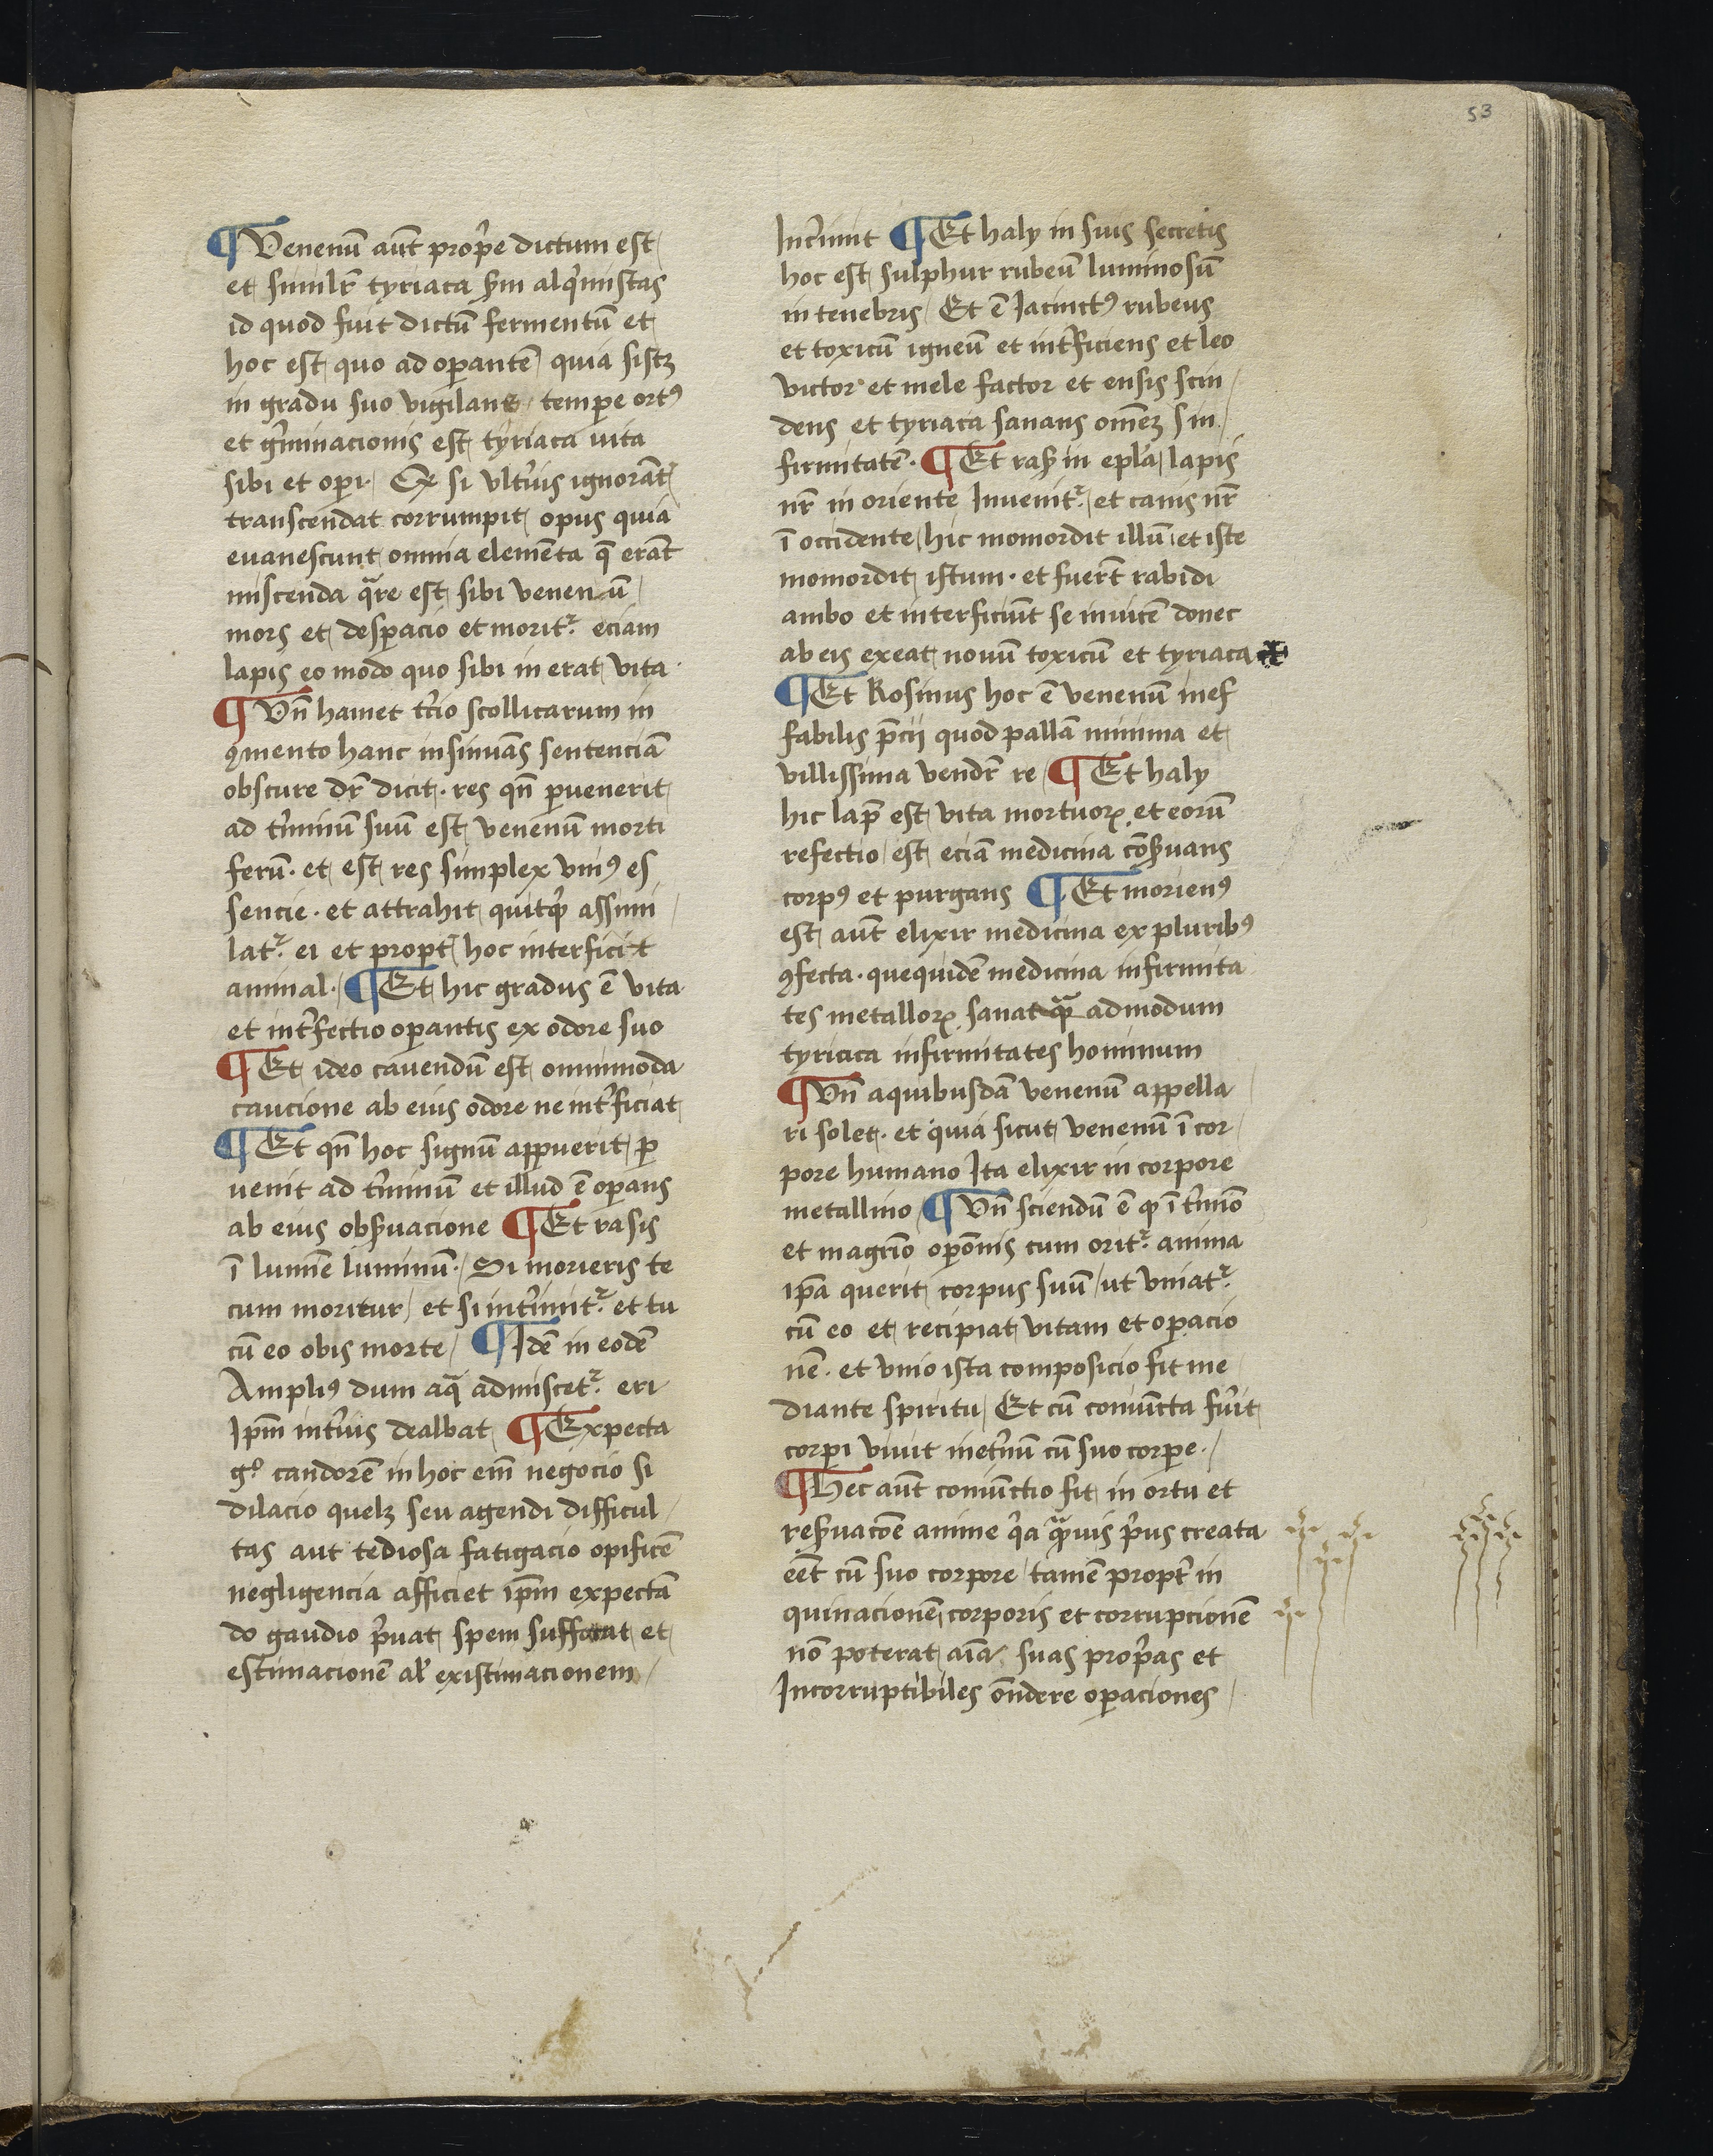 53
¶ Venenū aūt prop̄e dictum est
et similr̄ tyriaca s̄m alq̇mistas
id quod fuit dictū fermentū et
hoc est quo ad op̄antē quia sistꝫ
in gradu suo vigilans temp̄e ortꝰ
et gr̄minacionis est tyriaca uita
sibi et op̄i si vltr̄ius ignorāt̄
transcendat corrumpit opus quia
euanescunt omnia elemēta q̄ erāt
miscenda qᵃre est sibi venenū
mors et desp̄acio et moritᷣ eciam
lapis eo modo quo sibi in erat vita
¶ Vn̄ hamet tc̄io scollicarum in
ꝯmento hanc insinuās sentenciā
obscure dr̄ dicit · res qn̄ p̱uenerit
ad tr̄minū suū est venenū morti
ferū · et est res simplex vniꝰ es
sencie · et attrahit quitq̄ assimi
latᷣ ei et propt̄ hoc interficit
animal · ¶ Et hic gradus ē vita
et int̄fectio op̄antis ex odore suo
¶ Et ideo cauendū est omnimoda
caucione ab eius odore ne int̄ficiat
¶ Et qn̄ hoc signū app̱uerit p̱
uenit ad tr̄minū et illud ē op̄ans
ab eius obs̄uacione ¶ Et rasis
ī lumīe luminū · Si morieris te
cum moritur et si intr̄imitᷣ et tu
cū eo obis morte ¶ Idē in eodē
Ampliꝰ dum aqᵃ admiscetᷣ eri
Ip̄m int̄ius dealbat ¶ Expecta
gͦ candorē in hoc em̄ negocio si
dilacio quelꝫ seu agendi difficul
tas aut tediosa fatigacio opificē
negligencia afficiet ip̄m expectā
do gaudio p̄uat spem suffocat et
estimacionē al' existimacionem
Intr̄imit ¶ Et haly in suis secretis
hoc est sulphur rubeū luminosū
in tenebris Et ē Jacinctꝰ rubeus
et toxicū igneū et int̄ficiens et leo
victor et mele factor et ensis scin
dens et tyriaca sanans om̄eꝫ in
firmitatē · ¶ Et ras̄ in ep̄la lapis
nr̄ in oriente Inuenitᷣ et canis nr̄
ī occidente hic momordit illū et iste
momordit istum · et fuer̄t rabidi
ambo et interficiūt se inuicē donec
ab eis exeat nouū toxicū et tyriaca
¶ Et Rosinus hoc ē venenū inef
fabilis p̄cij quod pallā minima et
villissima vendr̄ re ¶ Et haly
hic lap̄ est vita mortuoꝝ et eorū
refectio est eciā medicina cōs̄uans
corpꝰ et purgans ¶ Et morienꝰ
est aūt elixir medicina ex pluribꝰ
ꝯfecta · quequidē medicina infirmita
tes metalloꝝ sanat qᵃ admodum
tyriaca infirmitates hominum
¶ Vn̄ aquibusdā venenū appella
ri solet · et quia sicut venenū ī cor
pore humano Ita elixir in corpore
metallino ¶ Vn̄ sciendū ē q̄ ī tr̄mīo
et magr̄io op̄omīs cum oritᷣ anima
ip̄a querit corpus suū ut vniatᷣ
cū eo et recipiat vitam et op̄acio
nē · et vnio ista composicio fit me
diante spiritu Et cū coniūcta fu̾it
corp̱i viuit inet̄nū cū suo corp̱e ·
¶ Hec aūt coniūctio fit in ortu et
res̄uacōe anime q̇a qᵃuis p̄us creata
eēt cū suo corpore tamē propt̄ in
quinacionē corporis et corrupcionē
nō poterat aīa suas prop̄as et
Incorruptibiles ōndere op̄aciones